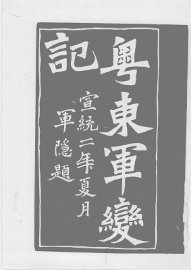 粤東軍變
記
宣統二年夏月
軍隱題